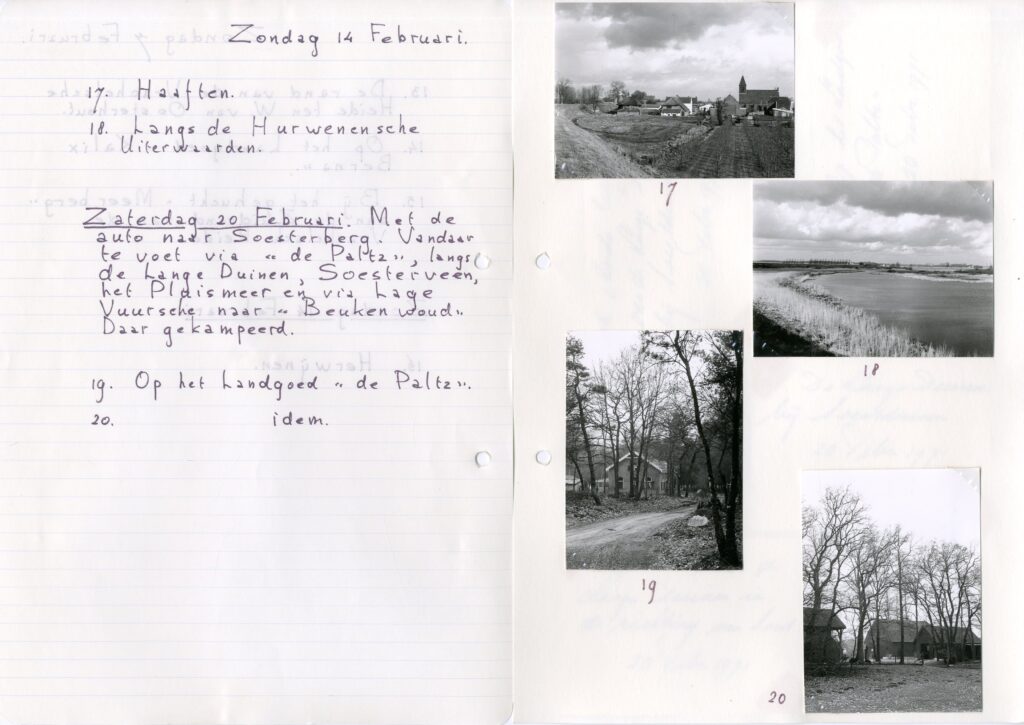 Zondag 14 Februari.
17. Haaften.
18. Langs de Hurwenensche
Uiterwaarden.
Zaterdag 20 Februari. Met de
auto naar Soesterberg. Vandaar
te voet via „ de Paltz ”, langs
de Lange Duinen, Soesterveen,
het Pluismeer en via Lage
Vuursche naar „ Beukenwoud ”
Daar gekampeerd.
19. Op het Landgoed „ de Paltz ”.
20. idem.
17
18
19
20